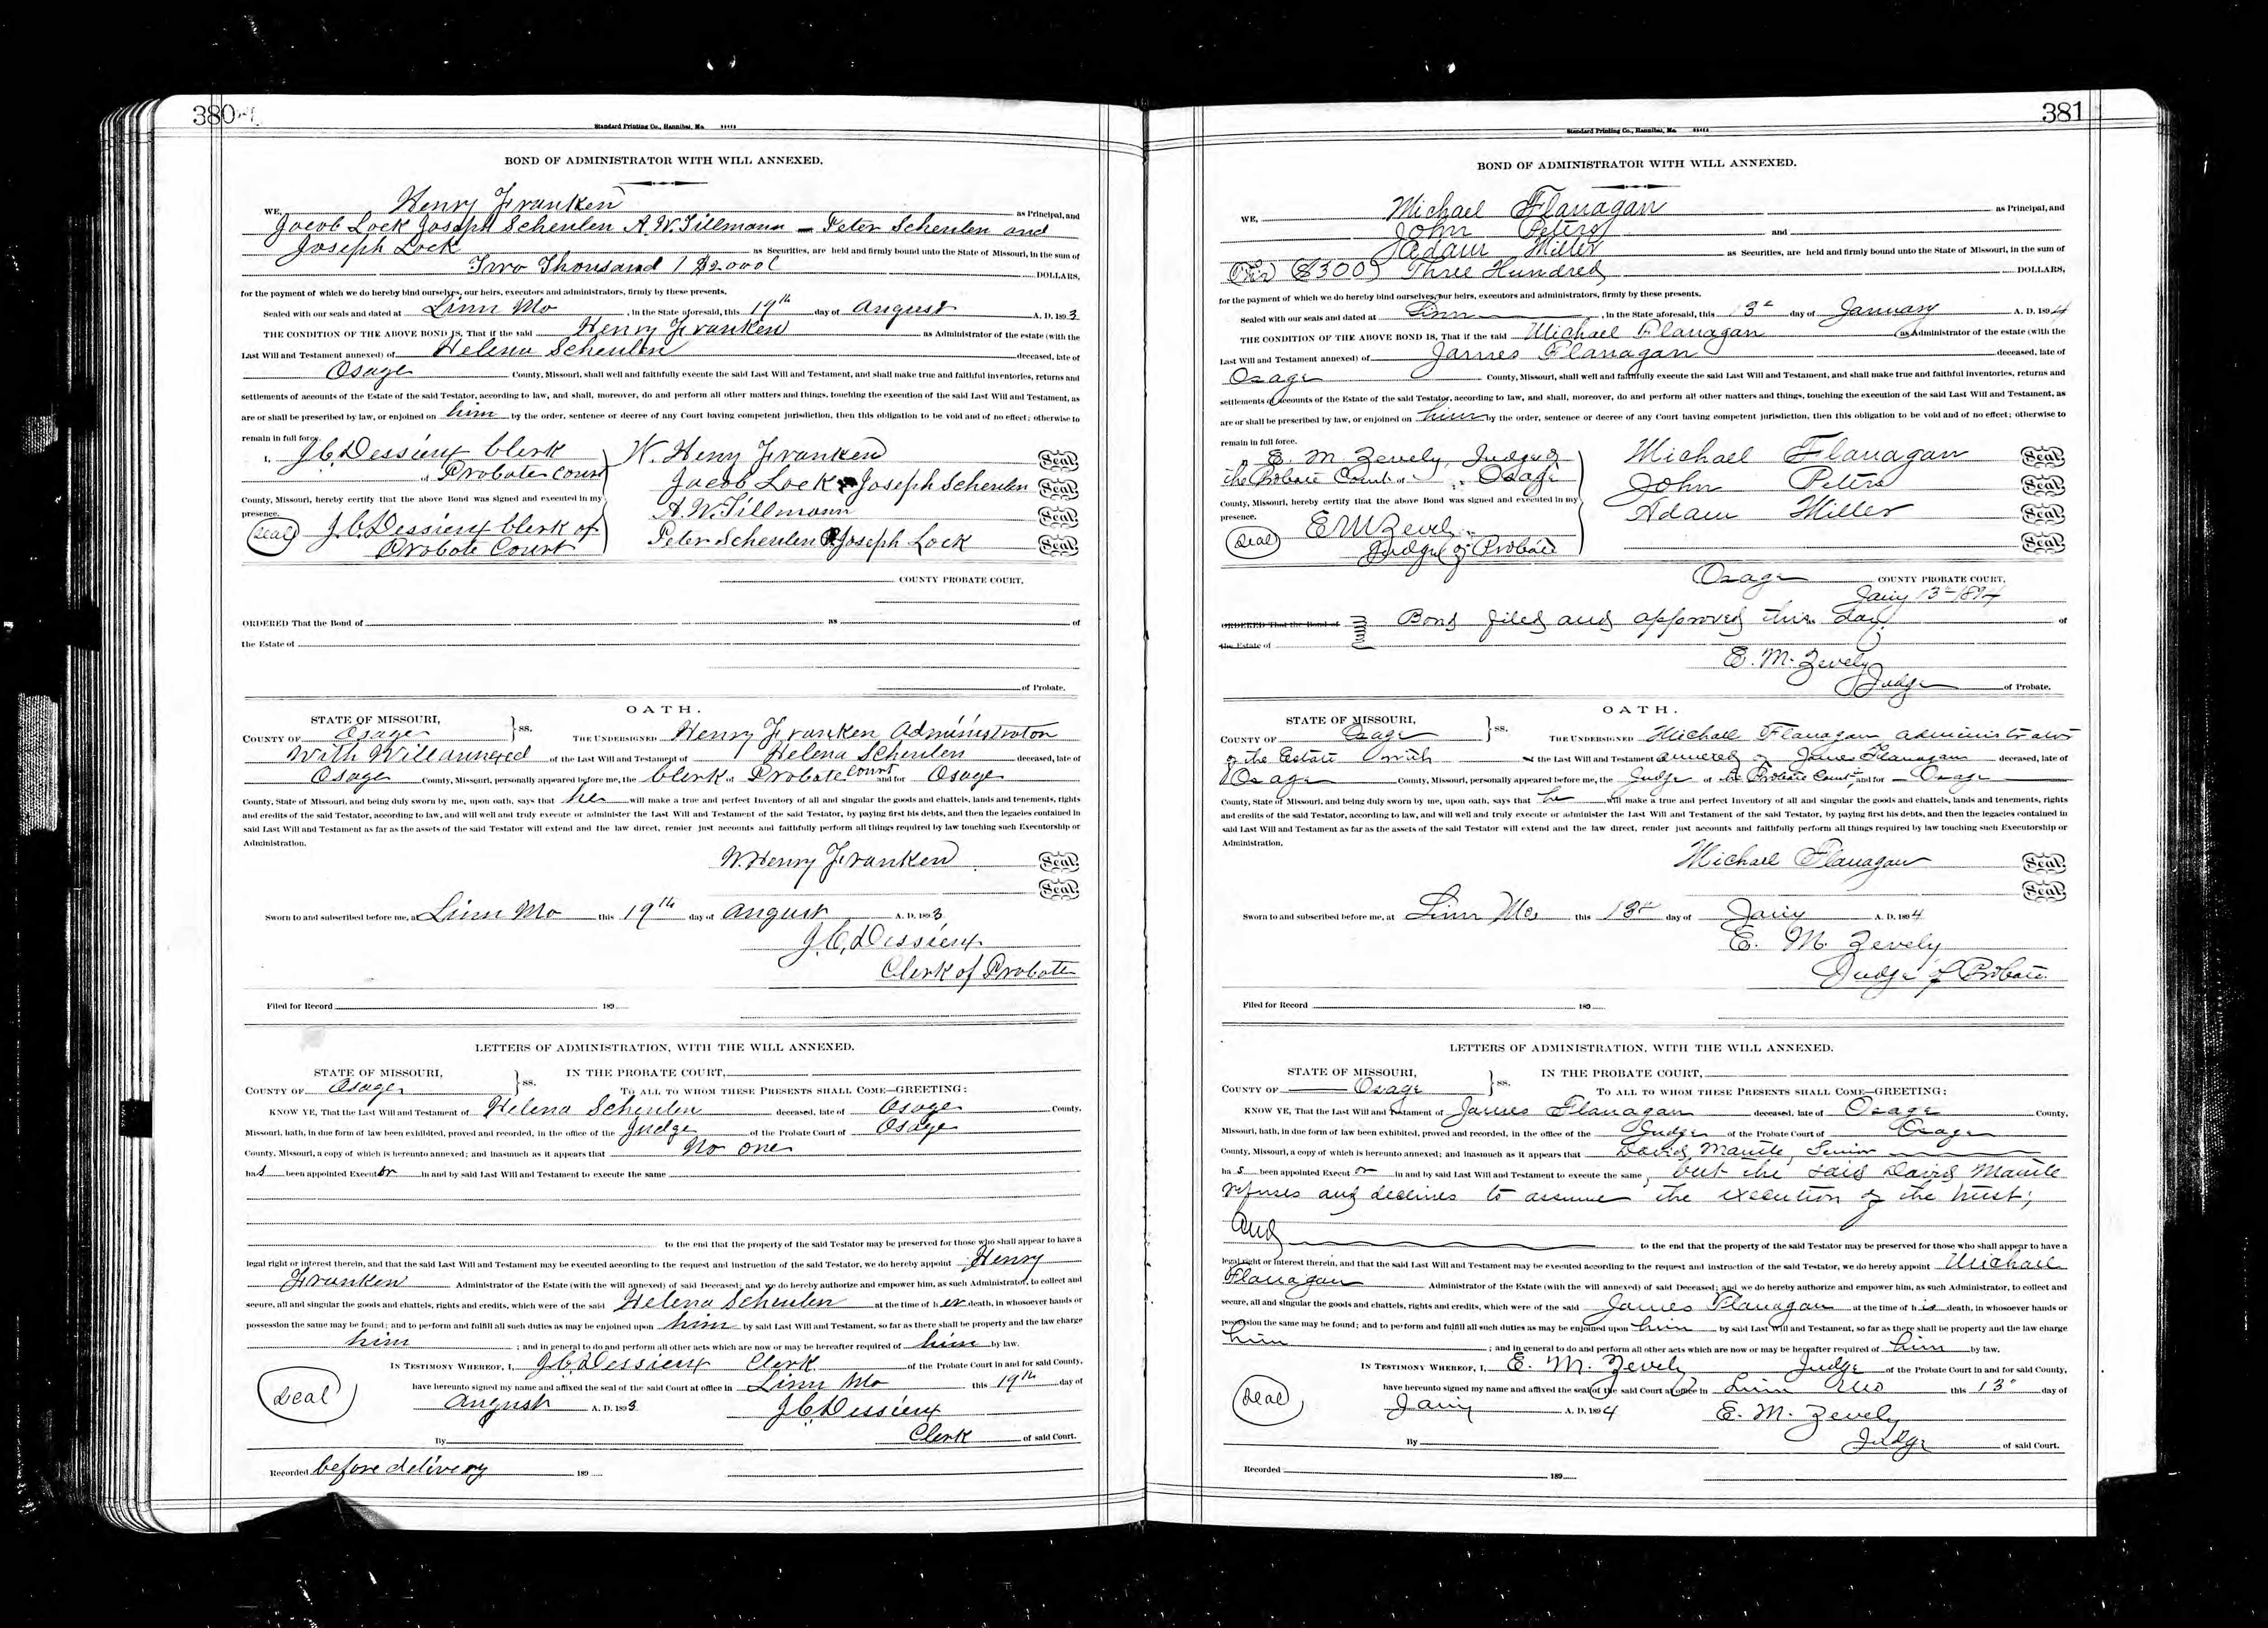 380
Standard Printing Co., Hannibal, Mo.
BOND OF ADMINISTRATOR WITH WILL ANNEXED.
WE, Henry Franken as Principal, and
Jacob Lock Joseph Scheulen A. W. Tillmann - Peter Scheulen and
Joseph Lock as Securities, are held and firmly bound unto the State of Missouri, in the sum of
Two Thousand ( $2000 ( DOLLARS,
for the payment of which we do hereby bind ourselves, our heirs, executors and administrators, firmly by these presents.
Sealed with our seals and dated at Linn Mo , in the State aforesaid, this 19th day of August A. D. 1893
THE CONDITION OF THE ABOVE BOND IS, That if the said Henry Franken as Administrator of the estate (with the
Last Will and Testament annexed) of Helena Scheulen deceased, late of
Osage County, Missouri, shall well and faithfully execute the said Last Will and Testament, and shall make true and faithful inventories, returns and
settlements of accounts of the Estate of the said Testator, according to law, and shall, moreover, do and perform all other matters and things, touching the execution of the said Last Will and Testament, as
are or shall be prescribed by law, or enjoined on him by the order, sentence or decree of any Court having competent jurisdiction, then this obligation to be void and of no effect; otherwise to
remain in full force.
I, J. C. Dessieux Clerk W. Henry Franken Seal.
of Probate Court Jacob Lock Joseph Scheulen Seal.
County, Missouri, hereby certify that the above Bond was signed and executed in my
presence. A. W. Tillmann Seal.
Seal J. C. Dessieux Clerk of Peter Scheulen Joseph Lock Seal.
Probate Court
COUNTY PROBATE COURT.
ORDERED That the Bond of as of
the Estate of
of Probate.
OATH.
STATE OF MISSOURI,
COUNTY OF Osage ss. THE UNDERSIGNED Henry Franken Administrator
With Will annexed of the Last Will and Testament of Helena Scheulen deceased, late of
Osage County, Missouri, personally appeared before me, the Clerk of Probate Court and for Osage
County, State of Missouri, and being duly sworn by me, upon oath, says that he will make a true and perfect Inventory of all and singular the goods and chattels, lands and tenements, rights
and credits of the said Testator, according to law, and will well and truly execute or administer the Last Will and Testament of the said Testator, by paying first his debts, and then the legacies contained in
said Last Will and Testament as far as the assets of the said Testator will extend and the law direct, render just accounts and faithfully perform all things required by law touching such Executorship or
Administration.
W. Henry Franken Seal.
Seal.
Sworn to and subscribed before me, at Linn Mo this 19th day of August A. D. 1893
J. C. Dessieux
Clerk of Probate
Filed for Record 189
LETTERS OF ADMINISTRATION, WITH THE WILL ANNEXED.
STATE OF MISSOURI, IN THE PROBATE COURT,
COUNTY OF Osage ss. TO ALL TO WHOM THESE PRESENTS SHALL COME—GREETING:
KNOW YE, That the Last Will and Testament of Helena Scheulen deceased, late of Osage County,
Missouri, hath, in due form of law been exhibited, proved and recorded, in the office of the Judge of the Probate Court of Osage
County, Missouri, a copy of which is hereunto annexed; and inasmuch as it appears that No one
has been appointed Executor in and by said Last Will and Testament to execute the same
to the end that the property of the said Testator may be preserved for those who shall appear to have a
legal right or interest therein, and that the said Last Will and Testament may be executed according to the request and instruction of the said Testator, we do hereby appoint Henry
Franken Administrator of the Estate (with the will annexed) of said Deceased; and we do hereby authorize and empower him, as such Administrator, to collect and
secure, all and singular the goods and chattels, rights and credits, which were of the said Helena Scheulen at the time of her death, in whosoever hands or
possession the same may be found; and to perform and fulfill all such duties as may be enjoined upon him by said Last Will and Testament, so far as there shall be property and the law charge
him ; and in general to do and perform all other acts which are now or may be hereafter required of him by law.
IN TESTIMONY WHEREOF, I, J. C. Dessieux Clerk of the Probate Court in and for said County,
have hereunto signed my name and affixed the seal of the said Court at office in Linn Mo this 19th day of
Seal August A. D. 1893 J C Dessieux
By Clerk of said Court.
Recorded before delivery 189
381
Standard Printing Co., Hannibal, Mo.
BOND OF ADMINISTRATOR WITH WILL ANNEXED.
WE, Michael Flanagan as Principal, and
John Peters and
Adam Miller as Securities, are held and firmly bound unto the State of Missouri, in the sum of
($300) Three Hundred DOLLARS,
for the payment of which we do hereby bind ourselves, our heirs, executors and administrators, firmly by these presents.
Sealed with our seals and dated at Linn , in the State aforesaid, this 13th day of January A. D. 1894
THE CONDITION OF THE ABOVE BOND IS, That if the said Michael Flanagan as Administrator of the estate (with the
Last Will and Testament annexed) of James Flanagan deceased, late of
Osage County, Missouri, shall well and faithfully execute the said Last Will and Testament, and shall make true and faithful inventories, returns and
settlements of accounts of the Estate of the said Testator, according to law, and shall, moreover, do and perform all other matters and things, touching the execution of the said Last Will and Testament, as
are or shall be prescribed by law, or enjoined on him by the order, sentence or decree of any Court having competent jurisdiction, then this obligation to be void and of no effect; otherwise to
remain in full force.
I, E. M. Zevely, Judge of Michael Flanagan Seal.
the Probate Court of Osage John Peters Seal.
County, Missouri, hereby certify that the above Bond was signed and executed in my
presence. Adam Miller Seal.
Seal E M Zevely Seal.
Judge of Probate
Osage COUNTY PROBATE COURT,
Jany 13th 1894
ORDERED That the Bond of Bond filed and approved this day. of
the Estate of
E. M. Zevely
Judge of Probate.
OATH.
STATE OF MISSOURI,
COUNTY OF Osage ss. THE UNDERSIGNED Michael Flanagan administrator
of the Estate with the Last Will and Testament annexed of James Flanagan deceased, late of
Osage County, Missouri, personally appeared before me, the Judge of the Probate Court and for Osage
County, State of Missouri, and being duly sworn by me, upon oath, says that he will make a true and perfect Inventory of all and singular the goods and chattels, lands and tenements, rights
and credits of the said Testator, according to law, and will well and truly execute or administer the Last Will and Testament of the said Testator, by paying first his debts, and then the legacies contained in
said Last Will and Testament as far as the assets of the said Testator will extend and the law direct, render just accounts and faithfully perform all things required by law touching such Executorship or
Administration.
Michael Flanagan Seal.
Seal.
Sworn to and subscribed before me, at Linn Mo, this 13th day of Jany A. D. 1894
E. M. Zevely
Judge of Probate.
Filed for Record 189
LETTERS OF ADMINISTRATION, WITH THE WILL ANNEXED.
STATE OF MISSOURI, IN THE PROBATE COURT,
COUNTY OF Osage ss. TO ALL TO WHOM THESE PRESENTS SHALL COME—GREETING:
KNOW YE, That the Last Will and Testament of James Flanagan deceased, late of Osage County,
Missouri, hath, in due form of law been exhibited, proved and recorded, in the office of the Judge of the Probate Court of Osage
County, Missouri, a copy of which is hereunto annexed; and inasmuch as it appears that David Mantle, Senior
has been appointed Executor in and by said Last Will and Testament to execute the same, but the said David Mantle
refuses and declines to assume the execution of the trust;
And
to the end that the property of the said Testator may be preserved for those who shall appear to have a
legal right or interest therein, and that the said Last Will and Testament may be executed according to the request and instruction of the said Testator, we do hereby appoint Michael
Flanagan Administrator of the Estate (with the will annexed) of said Deceased; and we do hereby authorize and empower him, as such Administrator, to collect and
secure, all and singular the goods and chattels, rights and credits, which were of the said James Flanagan at the time of his death, in whosoever hands or
possession the same may be found; and to perform and fulfill all such duties as may be enjoined upon him by said Last Will and Testament, so far as there shall be property and the law charge
him ; and in general to do and perform all other acts which are now or may be hereafter required of him by law.
IN TESTIMONY WHEREOF, I, E. M. Zevely Judge of the Probate Court in and for said County,
have hereunto signed my name and affixed the seal of the said Court at office in Linn Mo this 13th day of
Seal Jany A. D. 1894 E. M. Zevely
By Judge of said Court.
Recorded 189